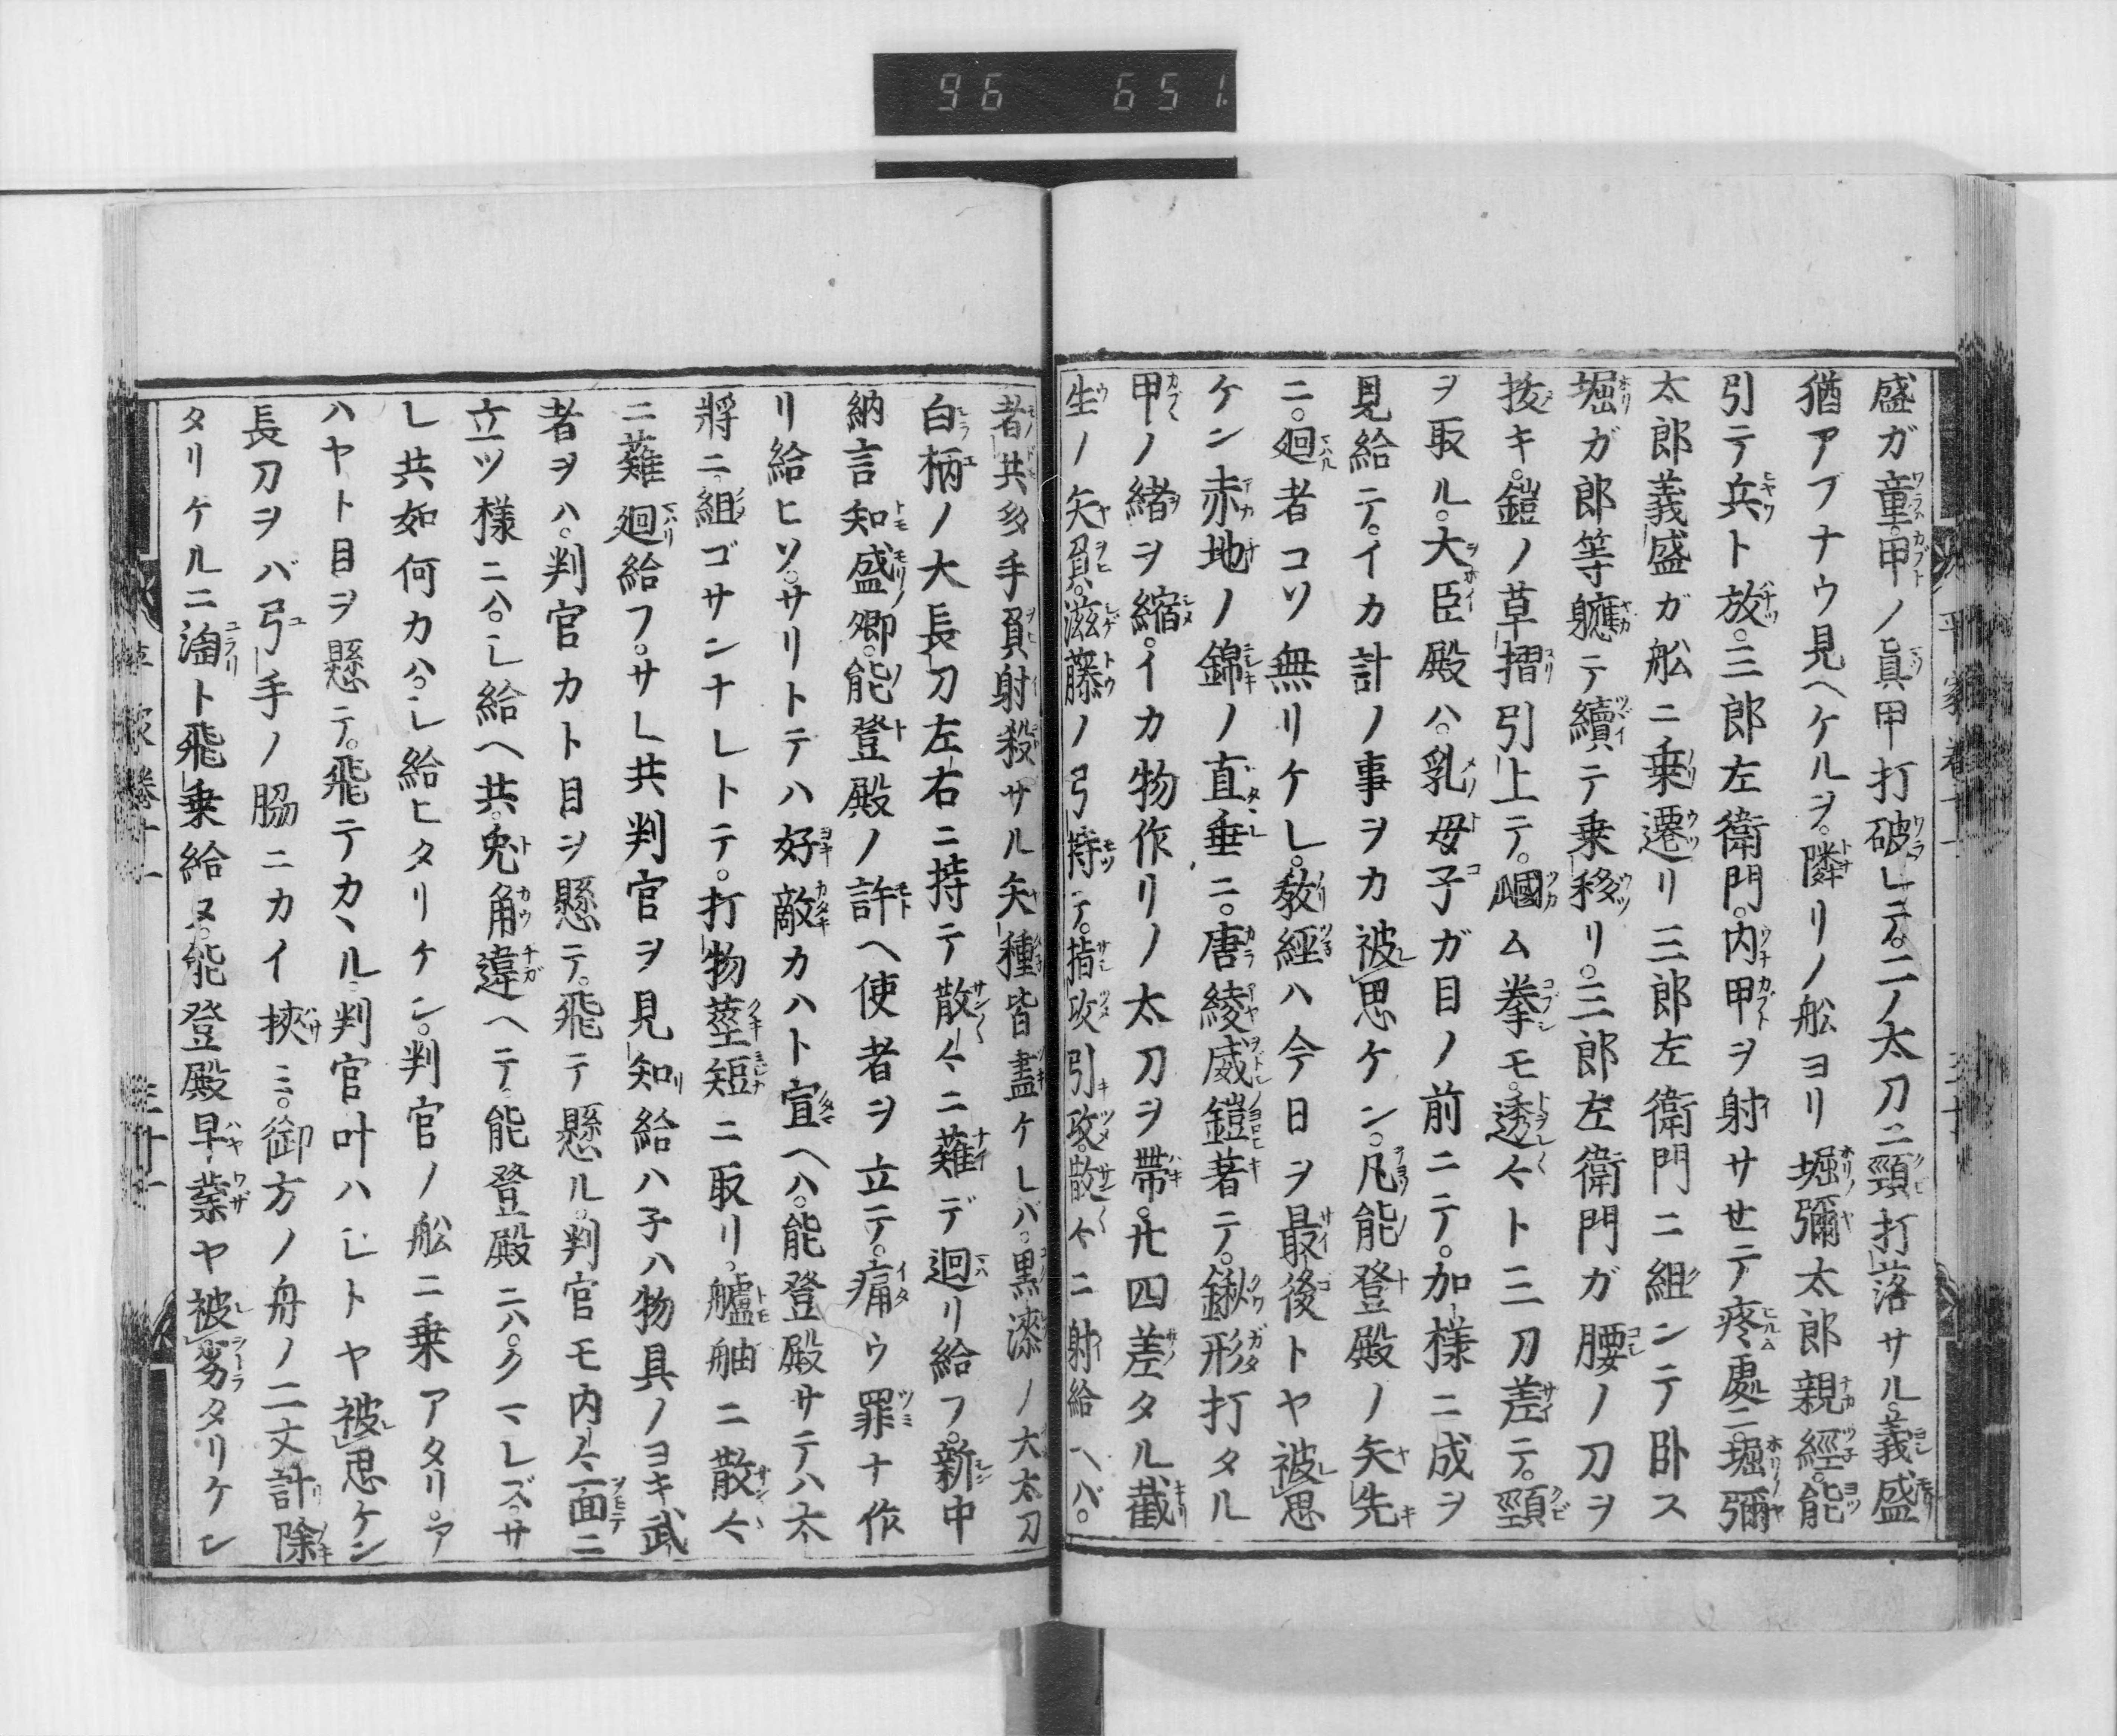 96 651
盛ガ童。甲ノ眞甲打破レテ。二ノ太刀ニ頸打落サル。義盛
猶アブナウ見ヘケルヲ。隣リノ舩ヨリ堀彌太郎親經。能
引テ兵ト放。三郎左衛門。内甲ヲ射サセテ疼處ニ。堀彌
太郎義盛ガ舩ニ乗遷リ三郎左衛門ニ組ンテ臥ス
堀ガ郎等軈テ續テ乗移リ。三郎左衛門ガ腰ノ刀ヲ
拔キ。鎧ノ草摺引上テ。爴ム拳モ。透々ト三刀差テ。頸
ヲ取ル。大臣殿ハ。乳母子ガ目ノ前ニテ。加様ニ成ヲ
見給テ。イカ計ノ事ヲカ被思ケン。凡能登殿ノ矢先
ニ。廻者コソ無リケレ。教經ハ今日ヲ最後トヤ被思
ケン赤地ノ錦ノ直垂ニ。唐綾威鎧著テ。鍬形打タル
甲ノ緒ヲ縮。イカ物作リノ太刀ヲ帶。廿四差タル截
生ノ矢負。滋藤ノ弓持テ。指攻引攻。散々ニ射給ヘバ。
者共多手負射殺サル矢種皆盡ケレバ。黒漆ノ大太刀
白柄ノ大長刀左右ニ持テ散々ニ薙デ廻リ給フ。新中
納言知盛卿。能登殿ノ許ヘ使者ヲ立テ。痛ウ罪ナ作
リ給ヒソ。サリトテハ好敵カハト宣ヘハ。能登殿サテハ大
將ニ組ゴサンナレトテ。打物莖短ニ取リ。艫舳ニ散々
ニ薙廻給フ。サレ共判官ヲ見知給ハ子ハ物具ノヨキ武
者ヲハ。判官カト目ヲ懸テ。飛テ懸ル。判官モ内々面ニ
立ツ様ニハ。シ給ヘ共。兔角違ヘテ。能登殿ニハ。クマレズ。サ
レ共如何カハ。シ給ヒタリケン。判官ノ舩ニ乗アタリ。ア
ハヤト目ヲ懸テ。飛テカヽル。判官叶ハシトヤ被思ケン
長刀ヲバ弓手ノ脇ニカイ挾ミ。御方ノ舟ノ二丈計除
タリケルニ淘ト飛乗給ヌ。能登殿早業ヤ被劣タリケン